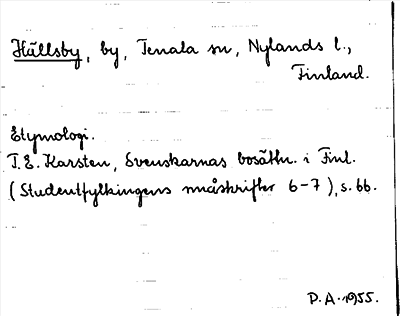 Hällsby, by, Tenala sn, Nylands l.,
Finland.
Etymologi.
T.E. Karsten, Svenskarnas bosättn. i Finl.
(Studentfylkingens småskrifter 6-7), s. 66.
P.A. 1955.